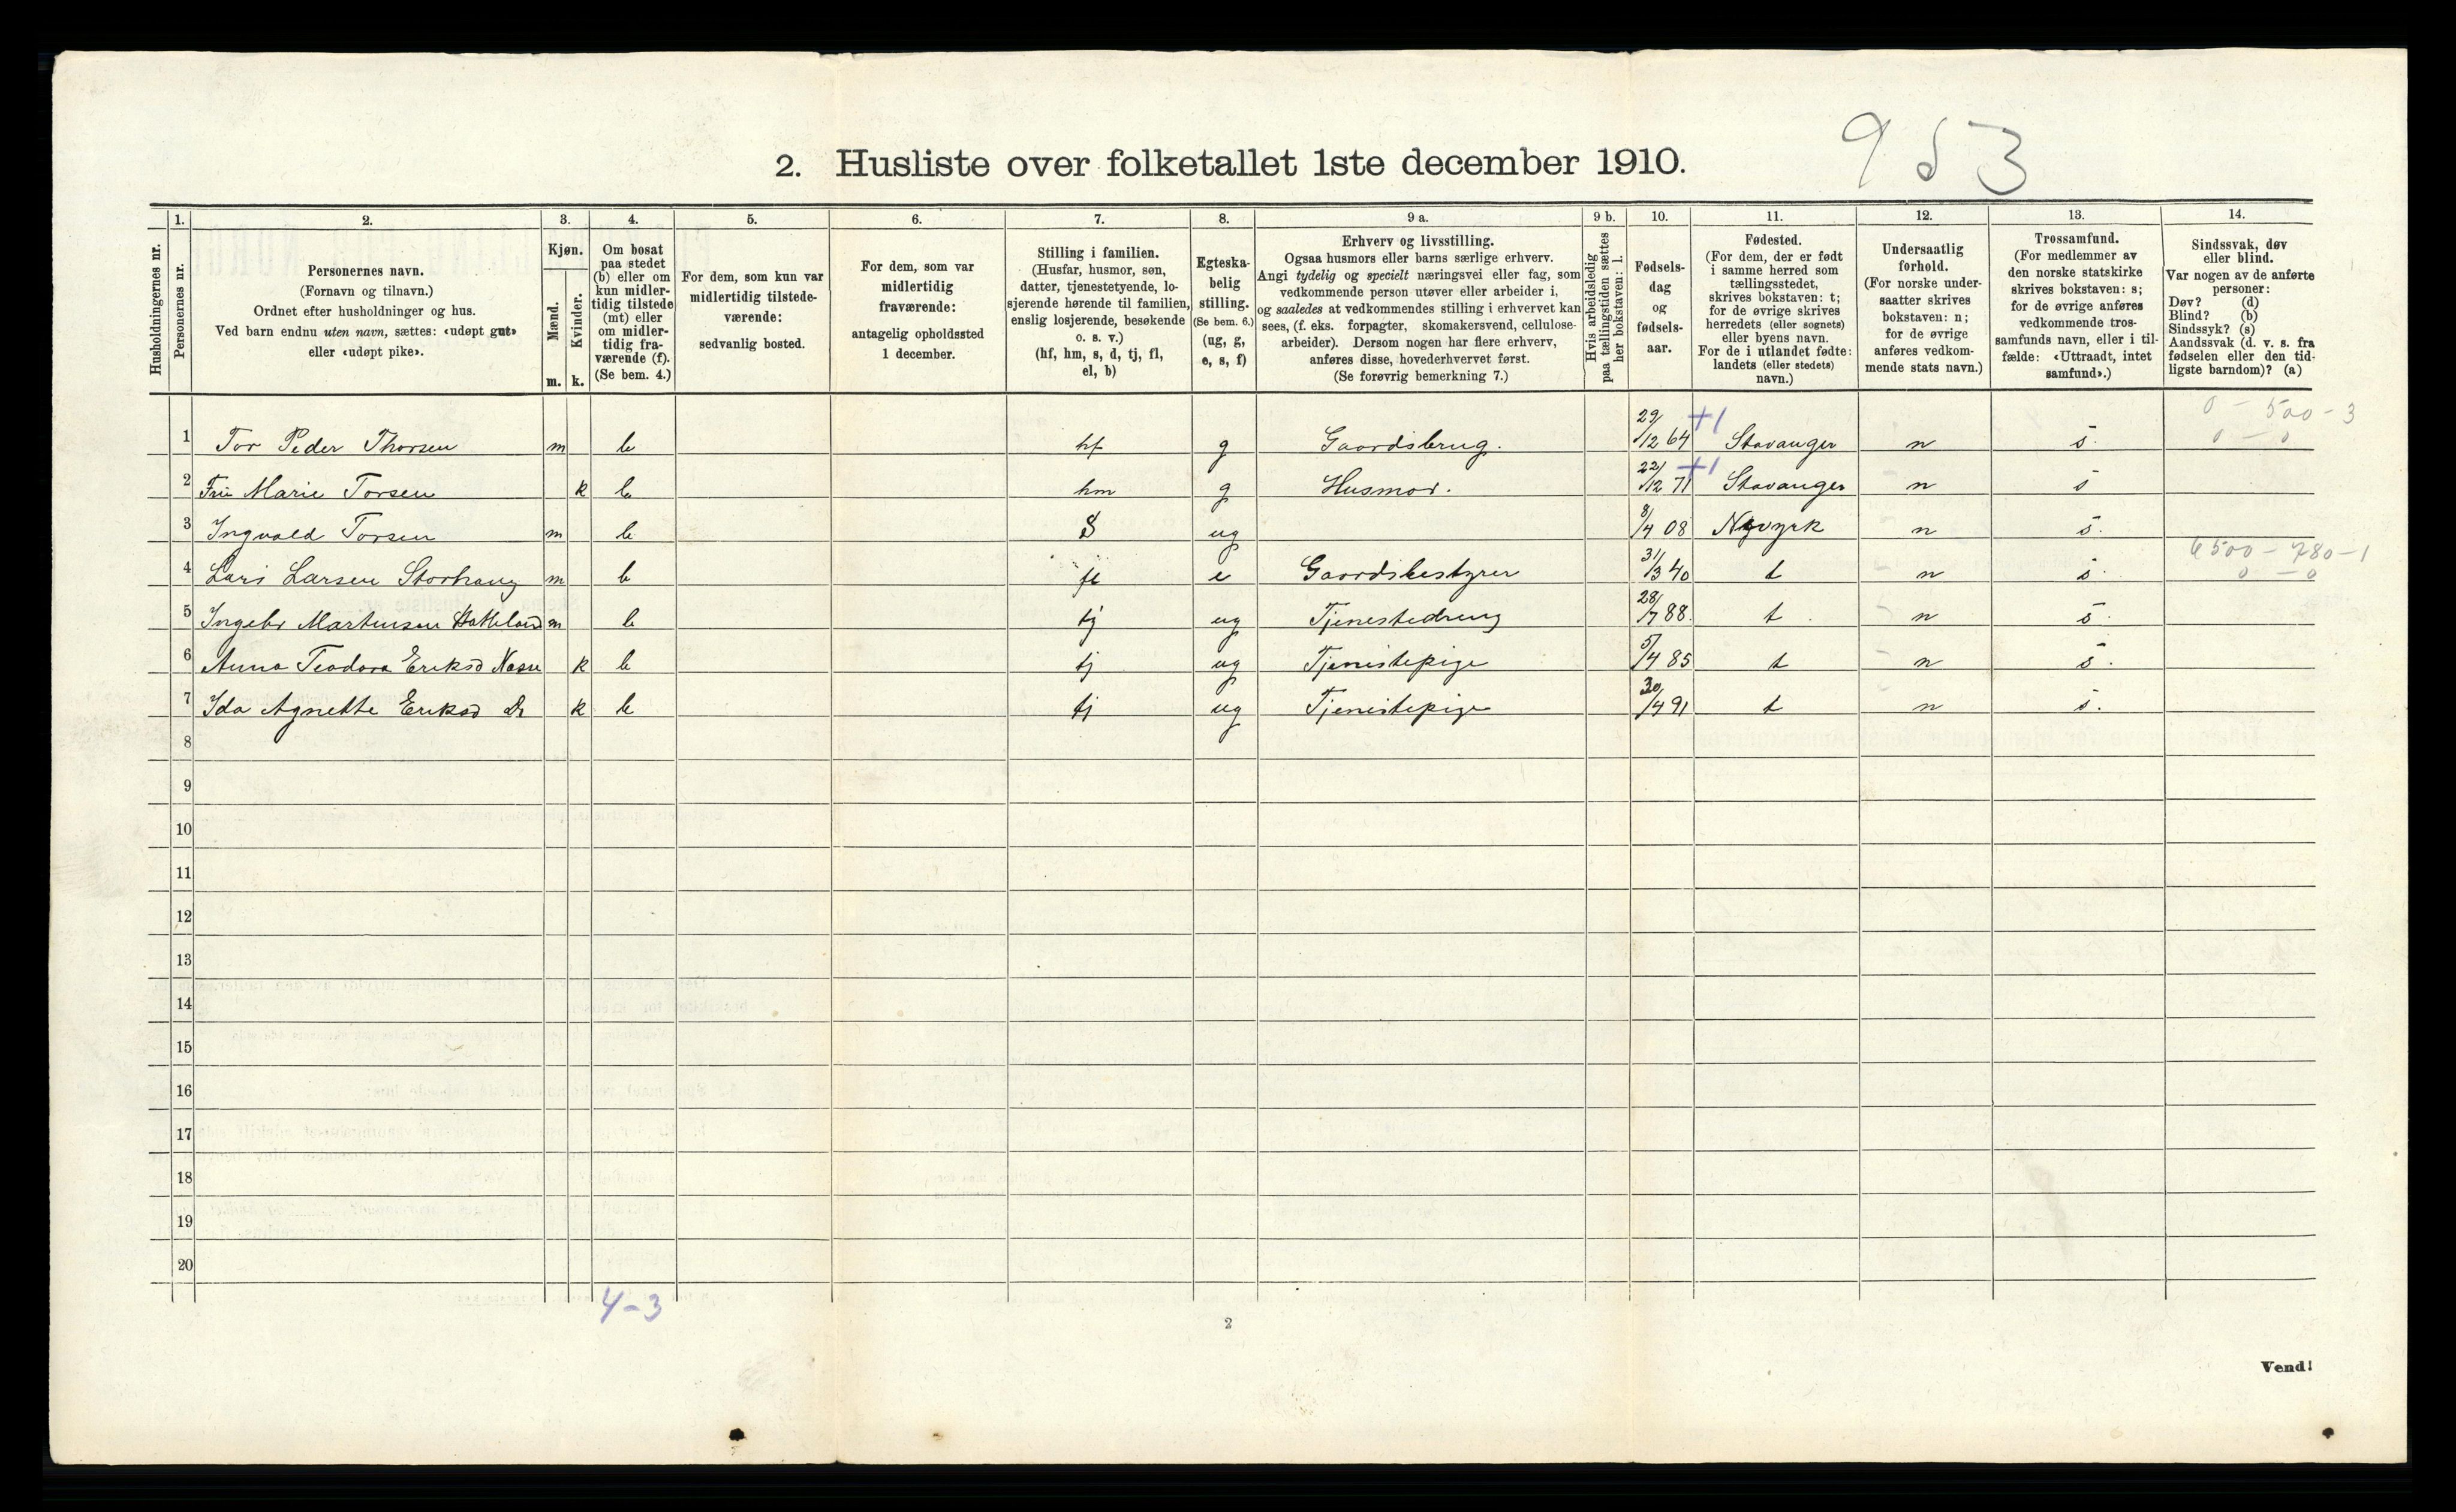 953
2. Husliste over folketallet 1ste december 1910.
Husholdningernes nr.
1. Personernes nr.
2. Personernes navn.
(Fornavn og tilnavn.)
Ordnet efter husholdninger og hus.
Ved barn endnu uten navn, sættes: «udøpt gut»
eller «udøpt pike».
3. Kjøn.
Mænd. m.
Kvinder. k.
4. Om bosat
paa stedet
(b) eller om
kun midler-
tidig tilstede
(mt) eller
om midler-
tidig fra-
værende (f).
(Se bem. 4.)
5. For dem, som kun var
midlertidig tilstede-
værende:
sedvanlig bosted.
6. For dem, som var
midlertidig
fraværende:
antagelig opholdssted
1 december.
7. Stilling i familien.
(Husfar, husmor, søn,
datter, tjenestetyende, lo-
sjerende hørende til familien,
enslig losjerende, besøkende
o. s. v.)
(hf, hm, s, d, tj, fl,
el, b)
8. Egteska-
belig
stilling.
(Se bem. 6.)
(ug, g,
e, s, f)
9 a. Erhverv og livsstilling.
Ogsaa husmors eller barns særlige erhverv.
Angi tydelig og specielt næringsvei eller fag, som
vedkommende person utøver eller arbeider i,
og saaledes at vedkommendes stilling i erhvervet kan
sees, (f. eks. forpagter, skomakersvend, cellulose-
arbeider). Dersom nogen har flere erhverv,
anføres disse, hovederhvervet først.
(Se forøvrig bemerkning 7.)
9 b. Hvis arbeidsledig
paa tællingstiden sættes
her bokstaven: l.
10. Fødsels-
dag
og
fødsels-
aar.
11. Fødested.
(For dem, der er født
i samme herred som
tællingsstedet,
skrives bokstaven: t;
for de øvrige skrives
herredets (eller sognets)
eller byens navn.
For de i utlandet fødte:
landets (eller stedets)
navn.)
12. Undersaatlig
forhold.
(For norske under-
saatter skrives
bokstaven: n;
for de øvrige
anføres vedkom-
mende stats navn.)
13. Trossamfund.
(For medlemmer av
den norske statskirke
skrives bokstaven: s;
for de øvrige anføres
vedkommende tros-
samfunds navn, eller i til-
fælde: «Uttraadt, intet
samfund».)
14. Sindssvak, døv
eller blind.
Var nogen av de anførte
personer:
Døv? (d)
Blind? (b)
Sindssyk? (s)
Aandssvak (d. v. s. fra
fødselen eller den tid-
ligste barndom)? (a)
0 - 500 - 3
1 Tor Peder Thorsen m b hf g Gaardsbrug. 29/12 64 +1 Stavanger n s. 0 - 0
2 Marie Torsen k b hm g Husmor. 22/12 71 +1 Stavanger n s
3 Ingvald Torsen m b S ug 8/4 08 n s.
6500 - 780 - 1
4 Lars Larsen Storhaug m b fl e Gaardsbestyrer 31/3 40 t n s. 0 - 0
5 Ingebr Martinsen Hatteland m b tj ug Tjenestedreng 28/7 88. t n s.
6 Anna Teodora Eriksd k b tj ug Tjenistepige 5/4 85 t n s.
7 Ida Agnette Eriksd k b tj ug Tjenistepige 30/4 91 t n s.
8
9
10
11
12
13
14
15
16
17
18
19
20
4-3
2
Vend!